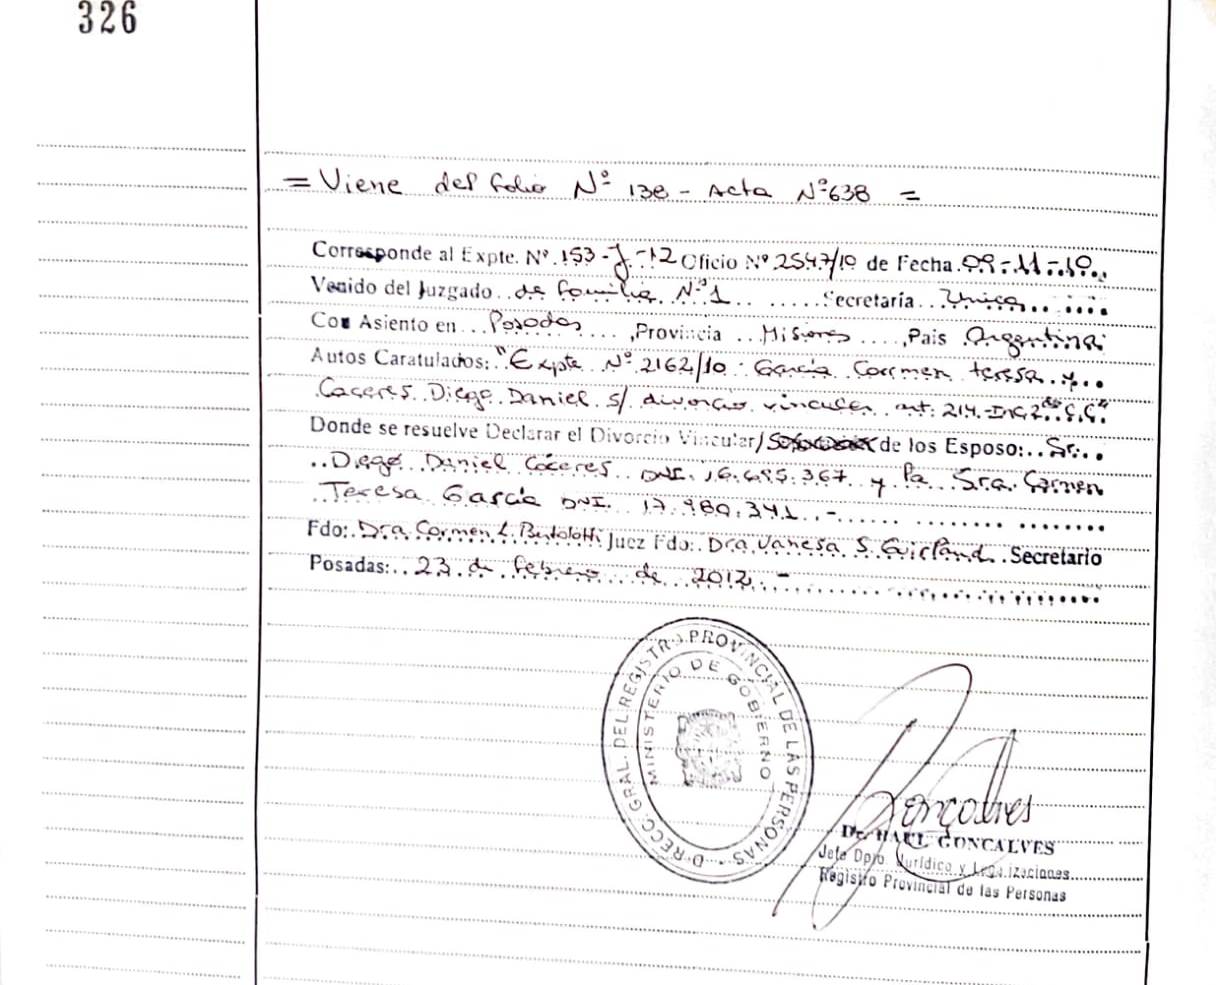 326
= Viene del folio Nº 138 - Acta Nº 638 =
Corresponde al Expte. Nº 153-J-12 Oficio Nº 2547/10 de Fecha 09-11-10
Venido del Juzgado de familia Nº1 Secretaría Unica
Con Asiento en Posadas, Provincia Misiones, Pais Argentina
Autos Caratulados: "Expte Nº 2162/10: García Carmen teresa y
Caceres Diego Daniel s/ divorcio vincular art. 214-Inc 2º C.C."
Donde se resuelve Declarar el Divorcio Vincular/ de los Esposo: Sr.
Diego Daniel Cáceres DNI. 16.695.367 y la Sra. Carmen
Teresa García DNI. 17.980.341.-
Fdo: Dra. Carmen L. Bertolotti Juez Fdo: Dra. Vanesa S. Secretario
Posadas: 23 de febrero de 2012.-
D-RECC. GRAL. DEL REGISTRO PROVINCIAL DE LAS PERSONAS
MINISTERIO DE GOBIERNO
Goncalves
Dr. RAUL GONCALVES
Jefe Dpto. Jurídico y Legalizaciones
Registro Provincial de las Personas